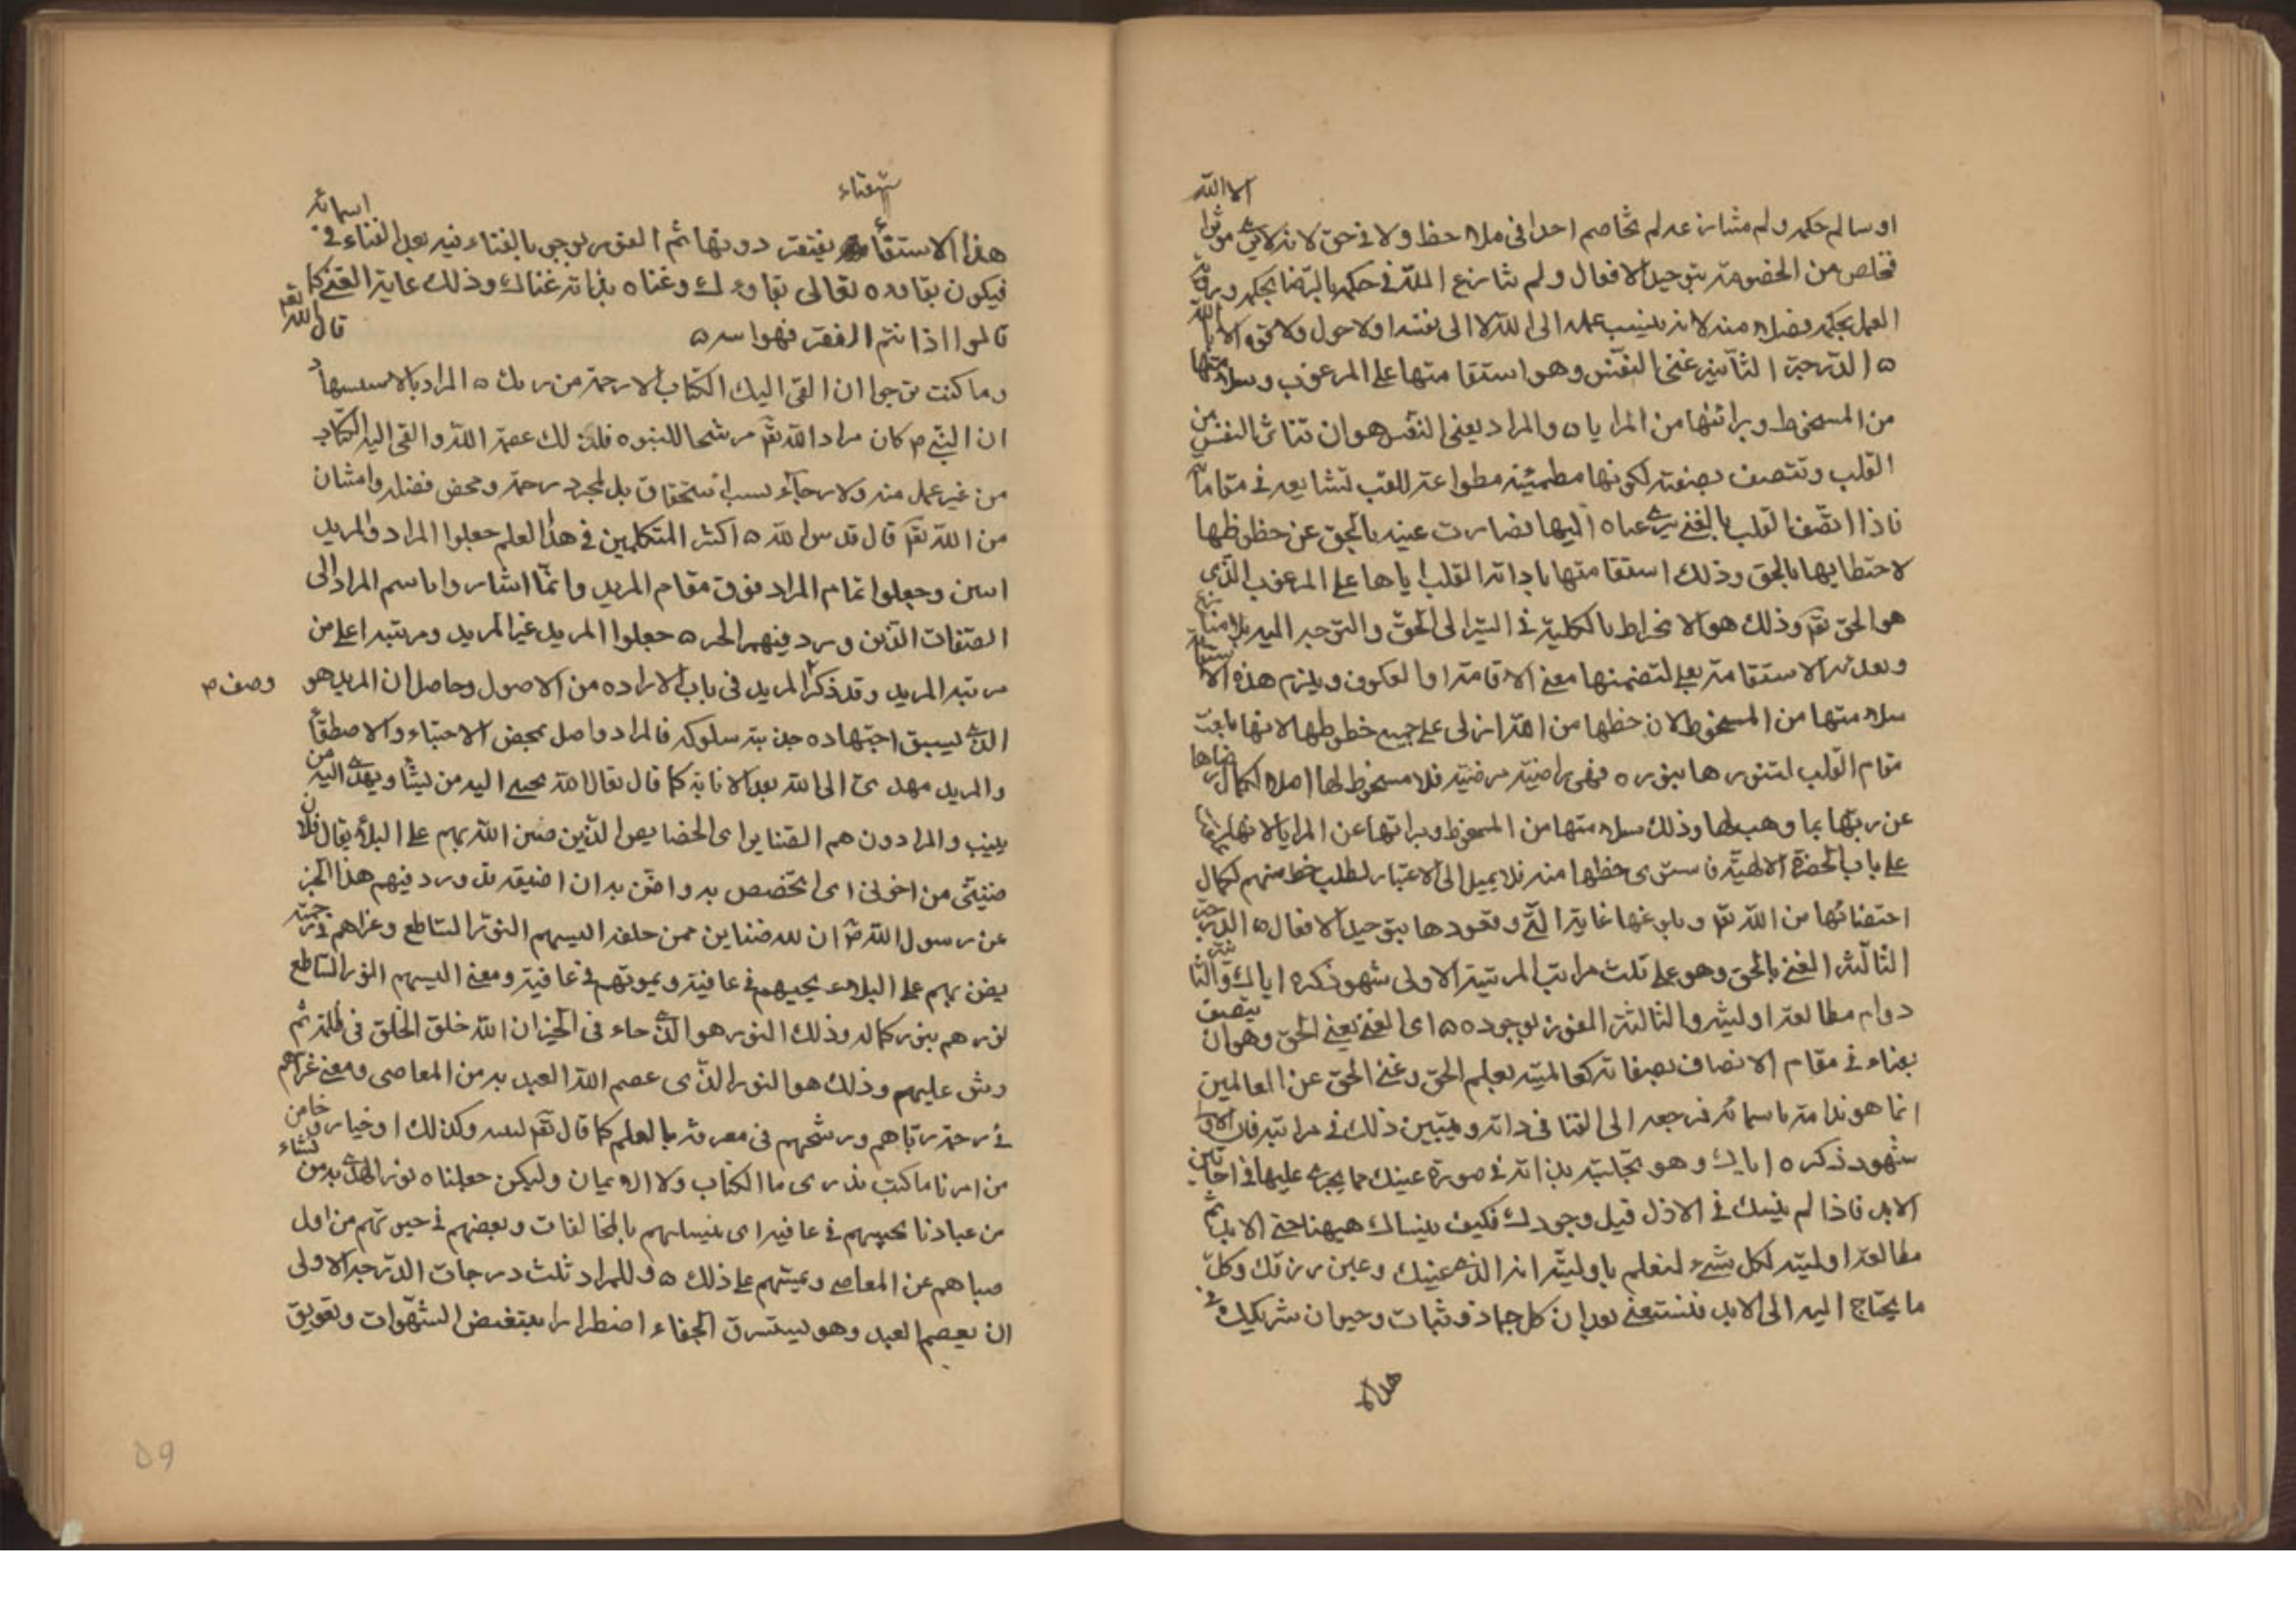 الا الله
او سالم حكمه ولم مشانزعه لم يخاصم احدا فى ملاحظ ولا فى حق لانه لا يرى موثرا
فخلص من الخصومة بتوحيد الافعال ولم ينازع الله فى حكمه بالرضا بحكمه ويرى
العمل بحكمه فضلا منه لانه ينسب عمله الى الله لا الى نفسه اولا حول ولا قوة الا بالله
ه الدرجة الثانية غنى النفس وهو استقامتها على المرغوب وسلامتها
من المسخوط وبرائتها من المرايا ه والمراد بغنى النفس هو ان تتاثر النفس من
القلب وتتصف بصفته لكونها مطمئنة مطواعة للقلب تشايعه فى مقاماته
فاذا اتصف القلب بالغنى سرى غناه اليها فصارت غنية بالحق عن حظوظها
لاحتظائها بالحق وذلك استقامتها بادائه القلب اياها على المرغوب الذى
هو الحق تعم وذلك هو الانخراط بالكلية فى السير الى الحق والتوجه اليه بلا منازعة
وتعديه الاستقامة بعلى لتضمنها معنى الاقامة او العكوف ويلزم هذه الاستقامة
سلامتها من المسخوط لان حظها من الله ازلى على جميع حظوظها لانها بلغت
مقام القلب لتنورها بنوره فهى راضية مرضية فلا مسخوط لها اصلا لكمال رضاها
عن ربها بما وهب لها وذلك سلامتها من المسخوط وبراتها عن المرايا لانها
على باب الحضرة الالهية فاستوى حظها منه فلا يميل الى الاعتبار لطلب حظ منهم لكمال
احتضائها من الله تعم وبلوغها غاية التى وقعودها بتوحيد الافعال ه الدرجة
الثالثة الغنى بالحق وهو على ثلث مراتب المرتبة الاولى شهود ذكره اياك والثانية
دوام مطالعة اوليته والثالثة الفوز بوجوده ه اى الغنى بغنى الحق وهو ان يتصف
بغناه فى مقام الاتصاف بصفاته كعالميته بعلم الحق وغنى الحق عن العالمين
انما هو بذاته باسمائه فمرجعه الى الفنا فى ذاته ويتبين ذلك فى مراتبه فان الاولى
شهود ذكره اياك وهو تجليته بذاته فى صورة عينك مما يجرى عليها فى احايين
الابد فاذا لم ينسك فى الازل قبل وجودك فكيف ينساك هيهنا حتى الابد ثم
مطالعة اوليته لكل شىء لتعلم باوليته انه الذى عينك وعين رزقك وكل
ما يحتاج اليه الى الابد فتستغنى به ان كل جماد ونبات وحيوان شريكك فى
هذا
ستغناء
هذا الاستقا يفتقر دونها ثم الفوز بوجوده بالفناء فيه بعد الفناء فى اسمائه
فيكون بقاوه تعالى بقاوك وغناه بذاته غناك وذلك غاية الغنى كما
قالوا اذا تم الفقر فهو الله ه قال الله تعم
وما كنت ترجوا ان يلقى اليك الكتاب الا رحمة من ربك ه المراد
ان النبى م كان مراد الله تعم مرشحا للنبوه فلذلك عصمه الله والقى اليه الكتاب
من غير عمل منه ولا رجاء بسبب استحقاق بل لمجرد رحمة ومحض فضل وامتنان
من الله تعم قال قدس الله ه اكثر المتكلمين فى هذا العلم جعلوا المراد والمريد
اسين وجعلوا مقام المراد فوق مقام المريد وانما اشاروا باسم المراد الى
الصفات الذين ورد فيهم الخبر ه جعلوا المريد غير المريد ومرتبه اعلى من
مرتبه المريد وقد ذكر المريد فى باب الاراده من الاصول وحاصل ان المريد هو وصف م
الذى يسبق اجتهاده جذبته سلوكه فالمراد واصل بمحض الاجتباء والاصطفا
والمريد مهدى الى الله بعد الانابة كما قال تعالى الله يجتبى اليه من يشا ويهدى اليه من
ينيب والمرادون هم الضناين اى الخصايص الذين ضن الله بهم على البلا يقال فلان
ضنيتى من اخوانى اى اختصص به واضن به ان اضيقه بك ورد فيهم هذا الخبر
عن رسول الله صم ان لله ضناين ممن خلقه البسهم النور الساطع وغذاهم فى رحمته
يضن بهم على البلاء يحييهم فى عافية ويموتهم فى عافية ومعنى البسهم النور الساطع
نورهم بنور كماله وذلك النور هو الذى جاء فى الخبر ان الله خلق الخلق فى ظلمة ثم
رش عليهم وذلك هو النور الذى عصم الله العبد به من المعاصى ومعنى غذاهم
فى رحمته رباهم ورشحهم فى معرفته بالعلم كما قال تعم لنبيه وكذلك اوحينا روحا من
من امرنا ما كنت تدرى ما الكتاب ولا الايمان وليكن جعلناه نور نهدى به من نشاء
من عبادنا يحييهم فى عافية اى بالمخالفات وبعضهم فى حيوتهم من اول
صباهم عن المعاصى ويميتهم على ذلك ه وللمراد ثلث درجات الدرجة الاولى
ان يعصم العبد وهو ليستشرق الجفاء اضطرارا بتنغيص الشهوات وتعويق
٥٩